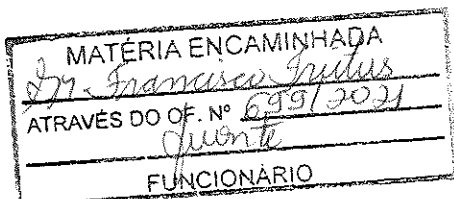 MATÉRIA ENCAMINHADA
Dr. Francisco
ATRAVÉS DO OF. Nº 699/2021
FUNCIONÁRIO